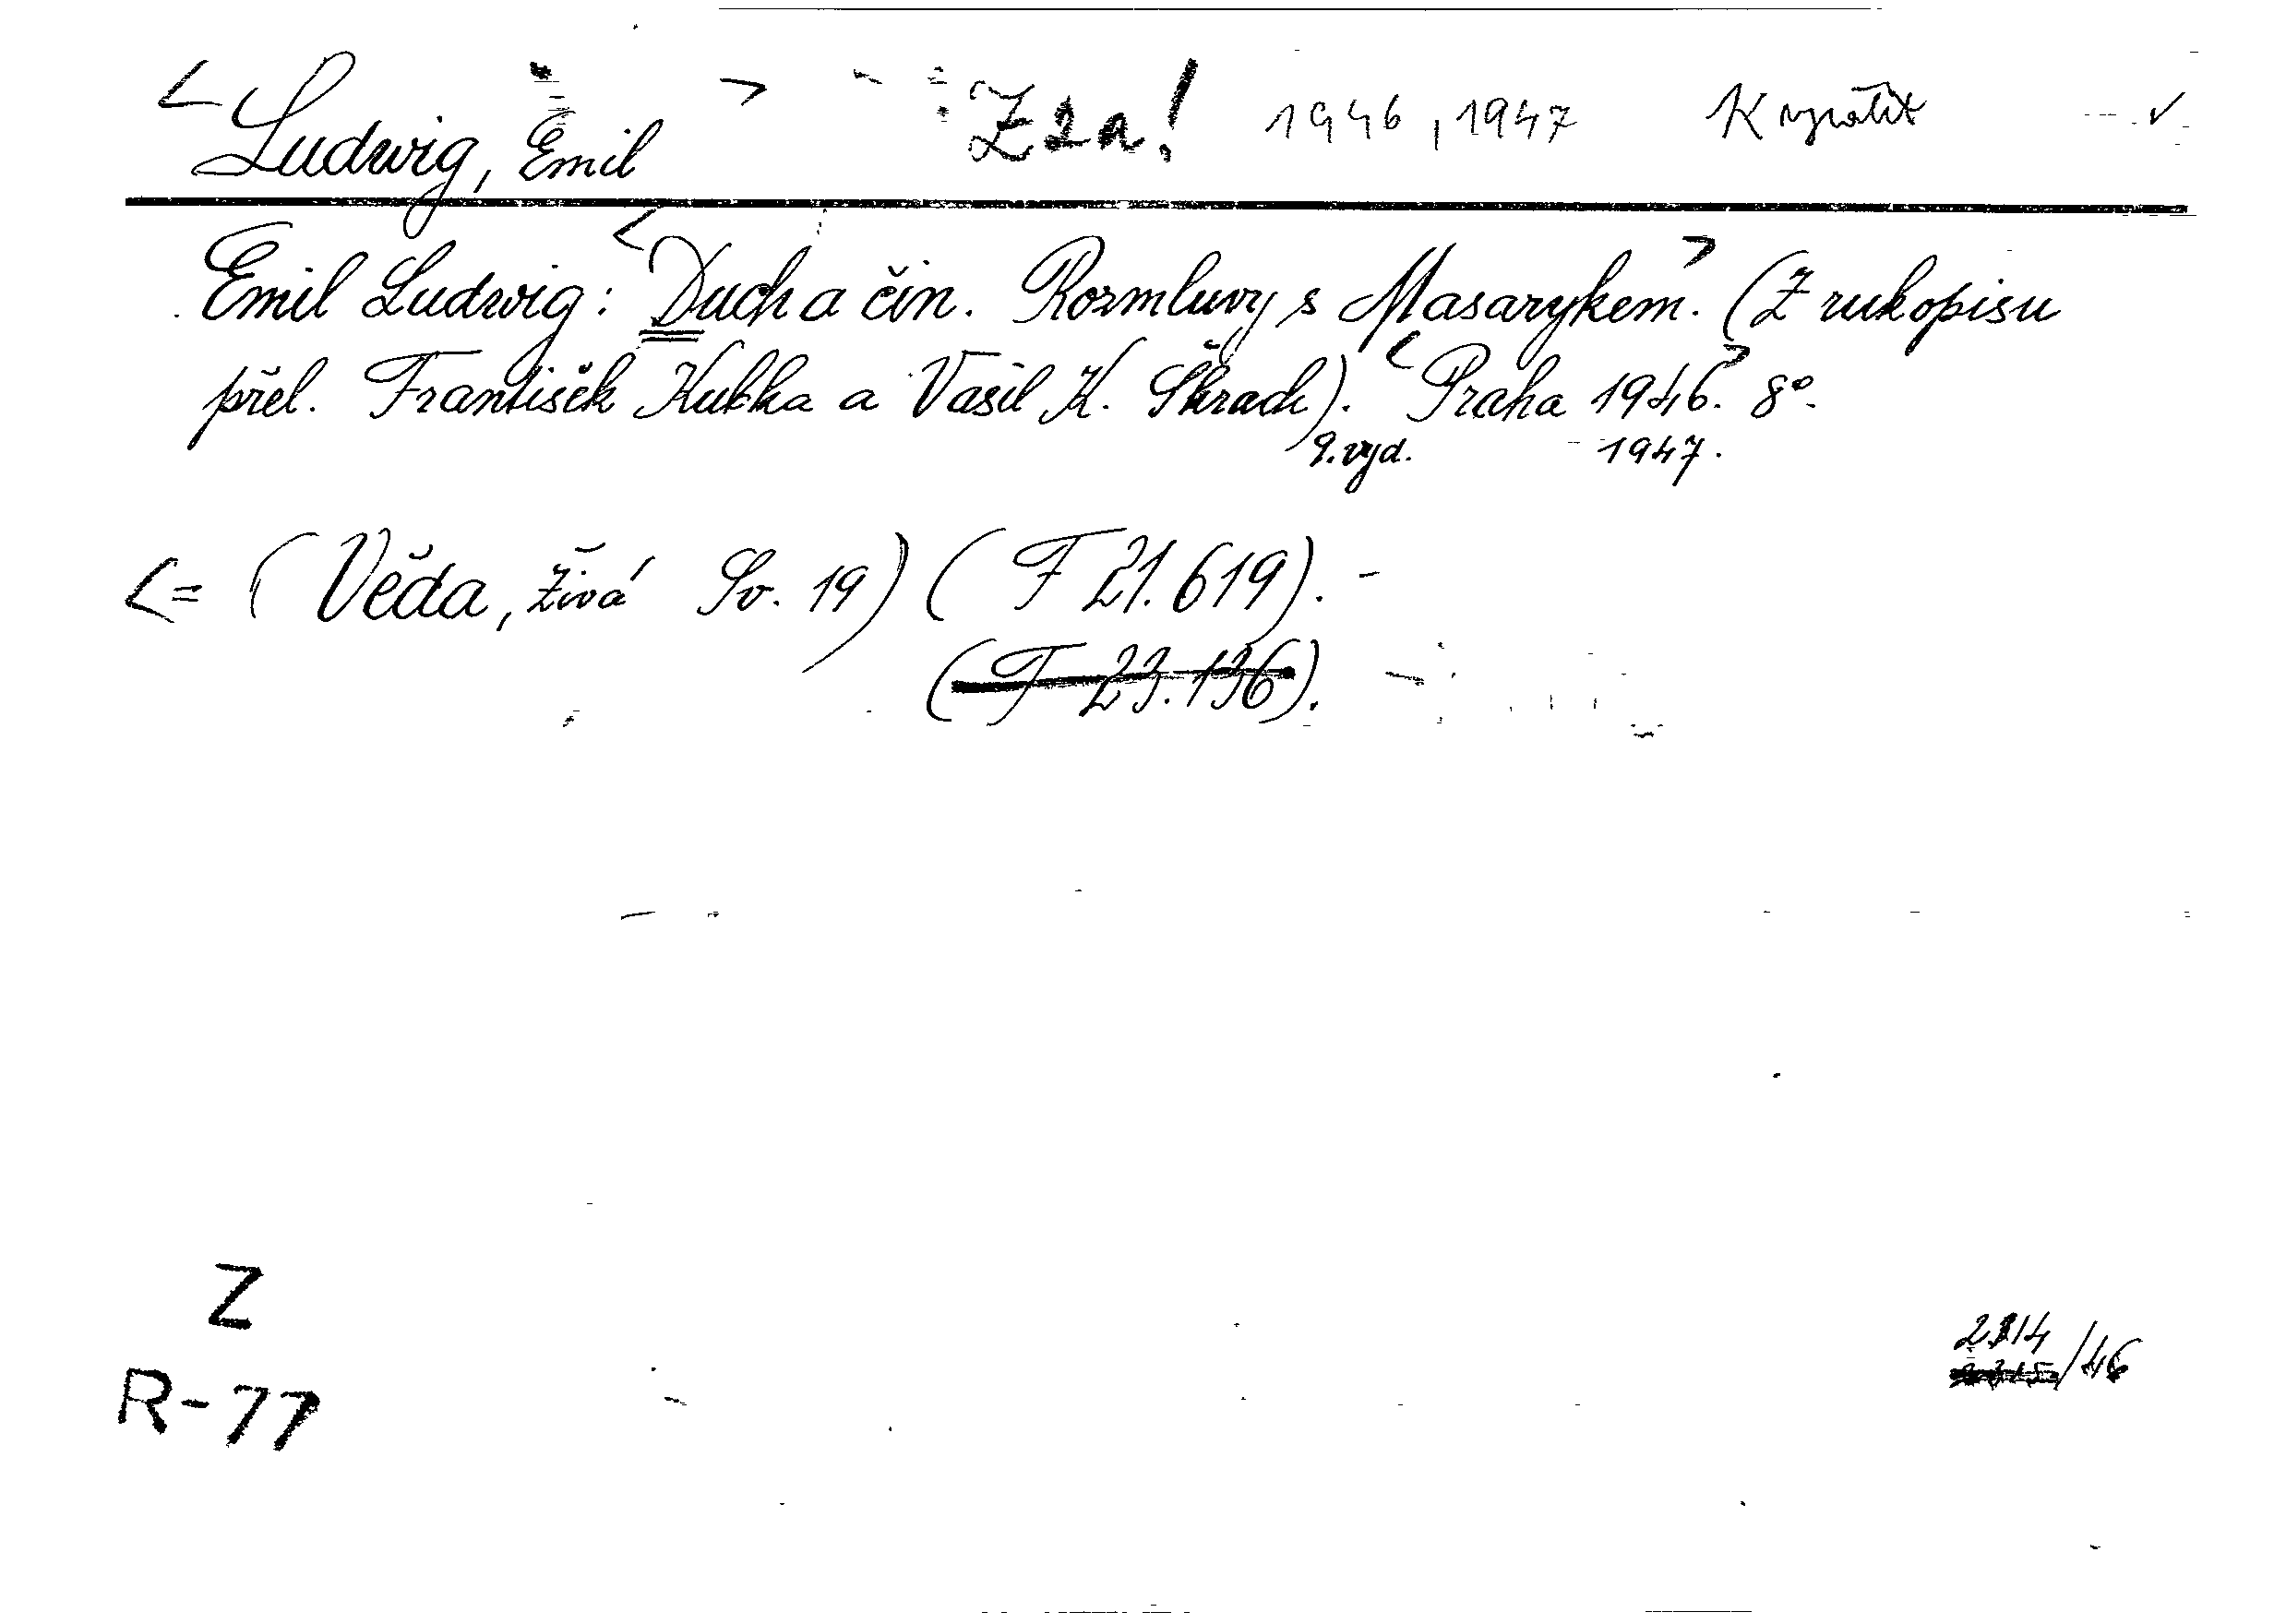 <Ludwig, Emil> Z 2a! 1946, 1947 K ✓
Emil Ludwig: <Duch a čin. Rozmluvy s Masarykem.> (Z rukopisu
přel. František Kubka a Vasil K. Škrach). <Praha 1946.> 8°.
9. vyd. 1947.
<= (Věda, živá Sv. 19) (F 21.619). -
(F 23.136). -
Z
R-77
/46